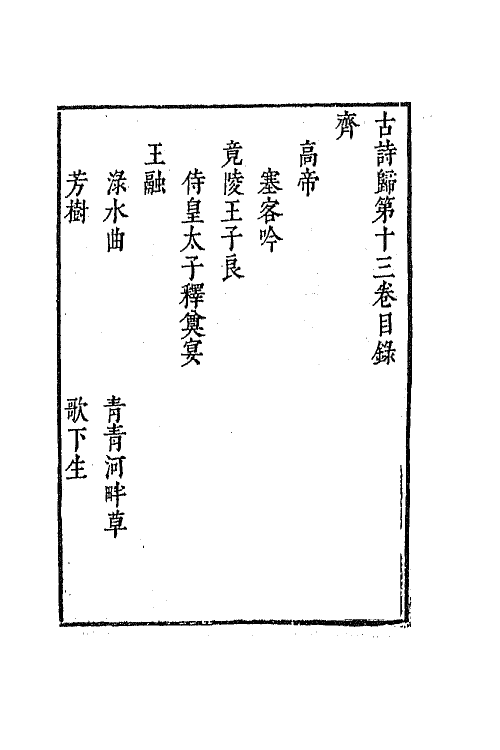 古詩歸第十三卷目錄
齊
高帝
塞客吟
竟陵王子良
侍皇太子釋奠宴
王融
淥水曲 青青河畔草
芳樹 歌下生